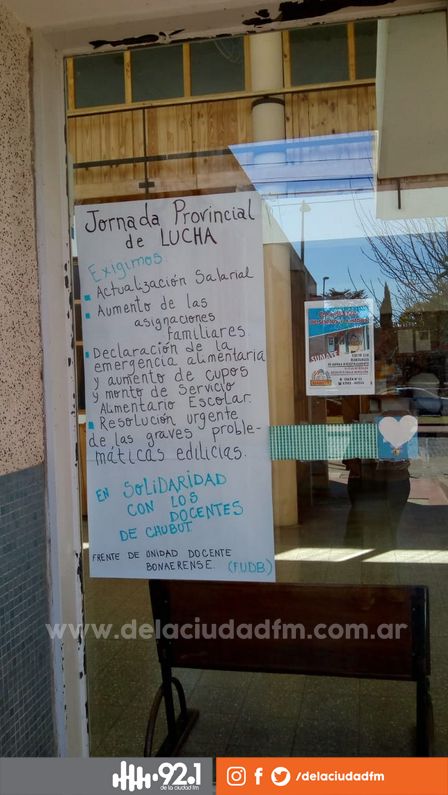 Jornada Provincial
de LUCHA
Exigimos:
Actualización Salarial
Aumento de las
asignaciones
familiares
Declaración de la
emergencia alimentaria
y aumento de cupos
y monto de Servicio
Alimentario Escolar.
Resolución urgente
de las graves proble-
máticas edilicias.
EN SOLiDARiDAD
CON LOS
DOCENTES
DE CHUBUT
FRENTE DE UNIDAD DOCENTE
BONAERENSE. (FUDB)
SUMATE
www.delaciudadfm.com.ar
92.1
de la ciudad fm
/delaciudadfm